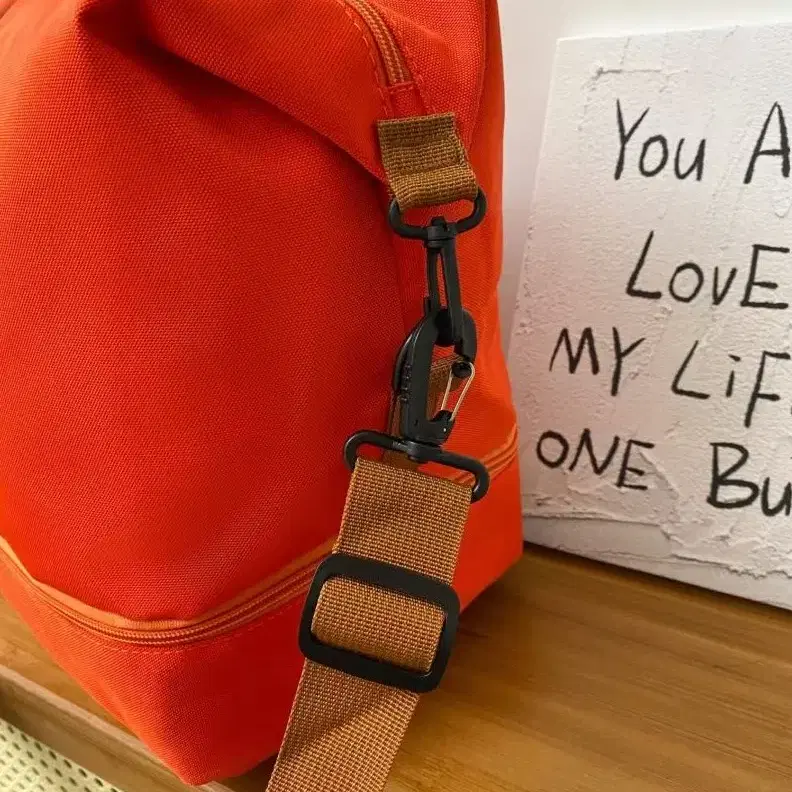 You A
LOVE
MY LiF
ONE Bu